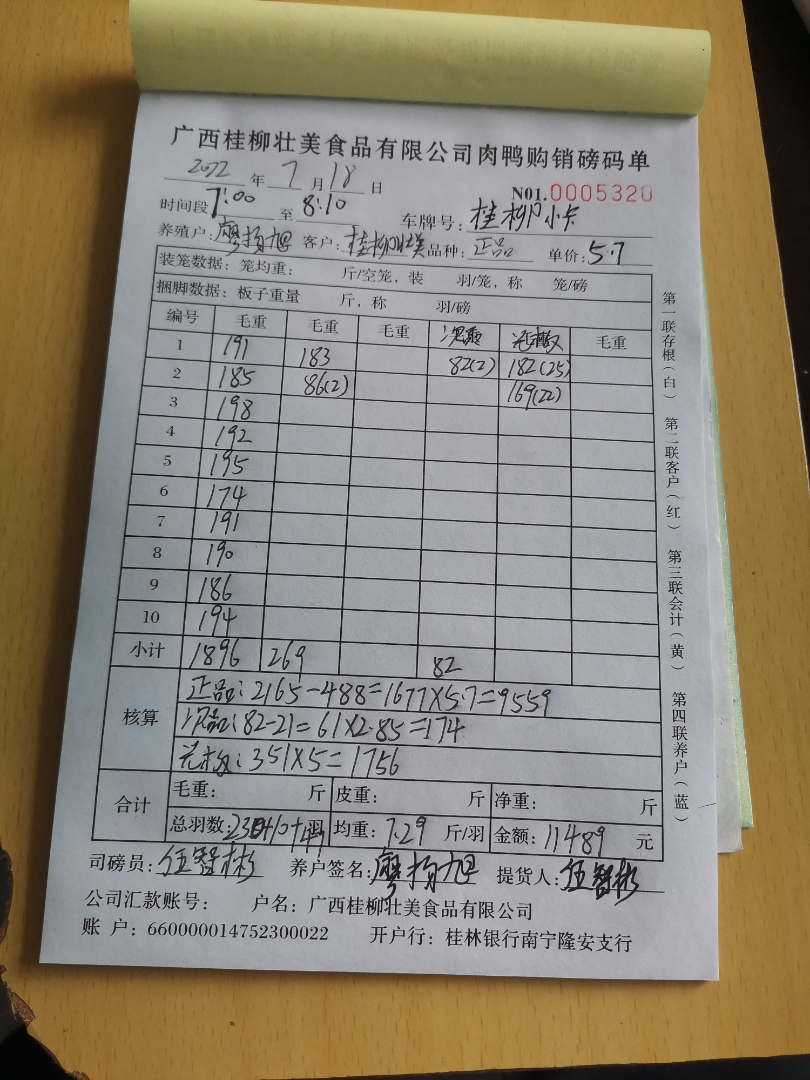 广西桂柳壮美食品有限公司肉鸭购销磅码单
2022 年 7 月 18 日
N01.0005320
时间段 7:00 至 8:10 车牌号: 桂柳小卡
养殖户: 廖扬旭 客户: 桂柳壮美 品种: 正品 单价: 5.7
装笼数据: 笼均重: 斤/空笼, 装 羽/笼, 称 笼/磅
捆脚数据: 板子重量 斤, 称 羽/磅
编号 毛重 毛重 毛重 毛重
1 191 183 82(2) 182(25)
2 185 86(2) 169(22)
3 198
4 192
5 195
6 174
7 191
8 190
9 186
10 194
小计 1896 269 82
核算
正品: 2165-488=1677×5.7=9559
次品: 82-21=61×2.85=174
351×5=1756
合计
毛重: 斤 皮重: 斤 净重: 斤
总羽数: 均重: 7.29 斤/羽 金额: 11489 元
司磅员: 伍智彬 养户签名: 廖扬旭 提货人: 伍智彬
公司汇款账号: 户名: 广西桂柳壮美食品有限公司
账 户: 660000014752300022 开户行: 桂林银行南宁隆安支行
第一联存根(白) 第二联客户(红) 第三联会计(黄) 第四联养户(蓝)